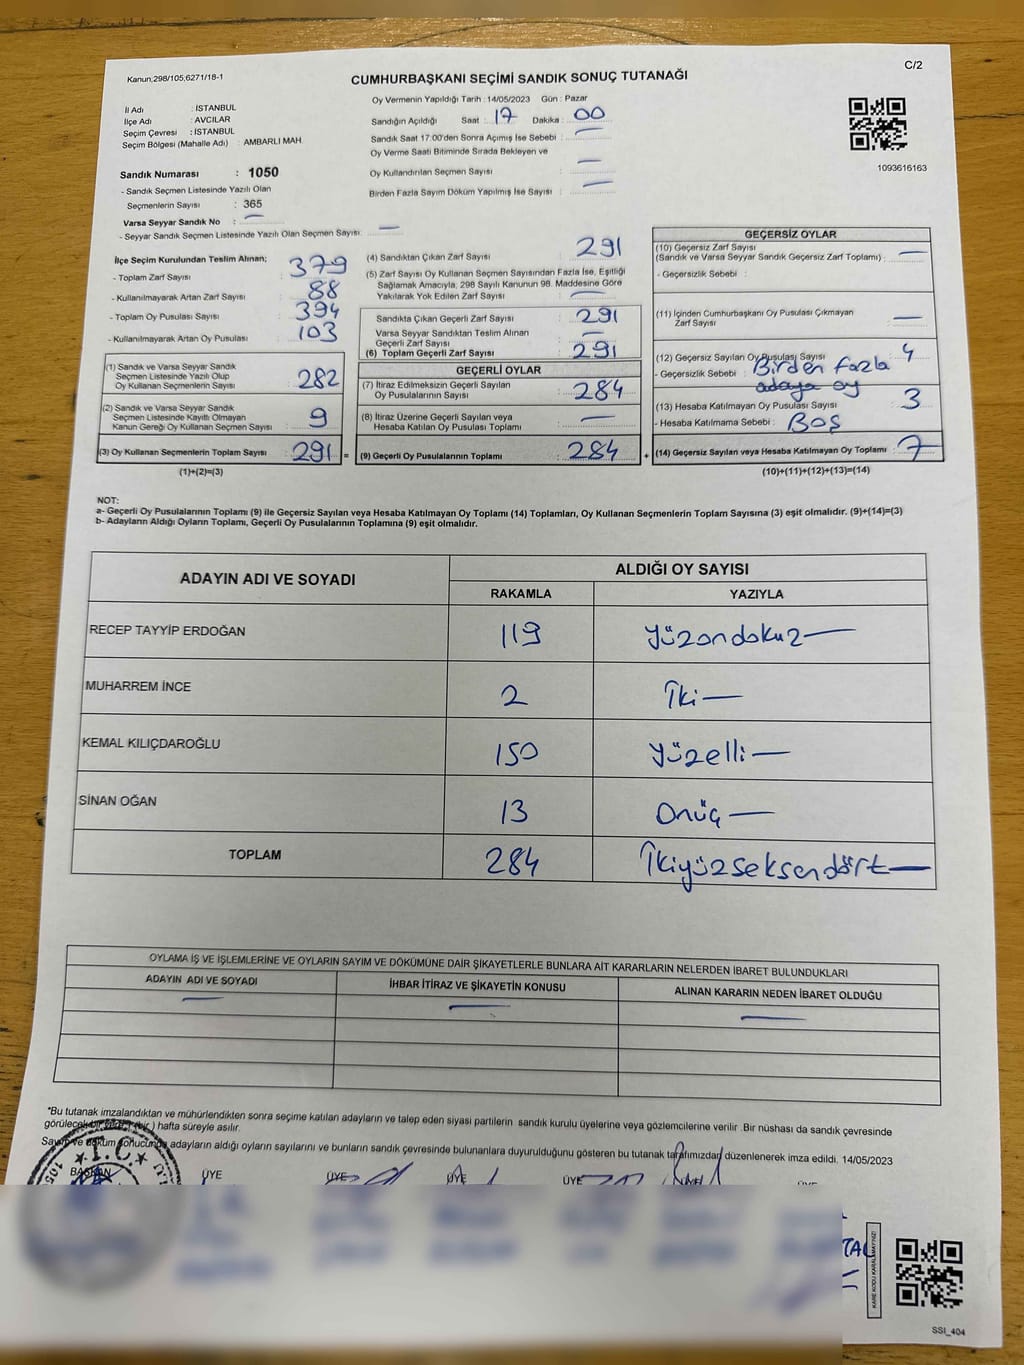 Kanun;298/105;6271/18-1
C/2
CUMHURBAŞKANI SEÇİMİ SANDIK SONUÇ TUTANAĞI
İl Adı : İSTANBUL
İlçe Adı : AVCILAR
Seçim Çevresi : İSTANBUL
Seçim Bölgesi (Mahalle Adı) : AMBARLI MAH.
Oy Vermenin Yapıldığı Tarih : 14/05/2023 Gün : Pazar
Sandığın Açıldığı Saat : 17 Dakika : 00
Sandık Saat 17:00'den Sonra Açımış İse Sebebi : —
Oy Verme Saati Bitiminde Sırada Bekleyen ve
Oy Kullandırılan Seçmen Sayısı : —
Birden Fazla Sayım Döküm Yapılmış İse Sayısı : —
1093616163
Sandık Numarası : 1050
- Sandık Seçmen Listesinde Yazılı Olan
Seçmenlerin Sayısı : 365
Varsa Seyyar Sandık No : —
- Seyyar Sandık Seçmen Listesinde Yazılı Olan Seçmen Sayısı : —
İlçe Seçim Kurulundan Teslim Alınan;
- Toplam Zarf Sayısı : 379
- Kullanılmayarak Artan Zarf Sayısı : 88
- Toplam Oy Pusulası Sayısı : 394
- Kullanılmayarak Artan Oy Pusulası : 103
(1) Sandık ve Varsa Seyyar Sandık
Seçmen Listesinde Yazılı Olup
Oy Kullanan Seçmenlerin Sayısı : 282
(2) Sandık ve Varsa Seyyar Sandık
Seçmen Listesinde Kayıtlı Olmayan
Kanun Gereği Oy Kullanan Seçmen Sayısı : 9
(3) Oy Kullanan Seçmenlerin Toplam Sayısı : 291 =
(1)+(2)=(3)
(4) Sandıktan Çıkan Zarf Sayısı : 291
(5) Zarf Sayısı Oy Kullanan Seçmen Sayısından Fazla İse, Eşitliği
Sağlamak Amacıyla, 298 Sayılı Kanunun 98. Maddesine Göre
Yakılarak Yok Edilen Zarf Sayısı : —
Sandıkta Çıkan Geçerli Zarf Sayısı : 291
Varsa Seyyar Sandıktan Teslim Alınan
Geçerli Zarf Sayısı : —
(6) Toplam Geçerli Zarf Sayısı : 291
GEÇERLİ OYLAR
(7) İtiraz Edilmeksizin Geçerli Sayılan
Oy Pusulalarının Sayısı : 284
(8) İtiraz Üzerine Geçerli Sayılan veya
Hesaba Katılan Oy Pusulası Toplamı : —
(9) Geçerli Oy Pusulalarının Toplamı : 284 +
GEÇERSİZ OYLAR
(10) Geçersiz Zarf Sayısı
(Sandık ve Varsa Seyyar Sandık Geçersiz Zarf Toplamı) : —
- Geçersizlik Sebebi :
(11) İçinden Cumhurbaşkanı Oy Pusulası Çıkmayan
Zarf Sayısı : —
(12) Geçersiz Sayılan Oy Pusulası Sayısı : 4
- Geçersizlik Sebebi : Birden fazla
adaya oy
(13) Hesaba Katılmayan Oy Pusulası Sayısı : 3
- Hesaba Katılmama Sebebi : Boş
(14) Geçersiz Sayılan veya Hesaba Katılmayan Oy Toplamı : 7
(10)+(11)+(12)+(13)=(14)
NOT:
a- Geçerli Oy Pusulalarının Toplamı (9) ile Geçersiz Sayılan veya Hesaba Katılmayan Oy Toplamı (14) Toplamları, Oy Kullanan Seçmenlerin Toplam Sayısına (3) eşit olmalıdır. (9)+(14)=(3)
b- Adayların Aldığı Oyların Toplamı, Geçerli Oy Pusulalarının Toplamına (9) eşit olmalıdır.
ADAYIN ADI VE SOYADI ALDIĞI OY SAYISI
RAKAMLA YAZIYLA
RECEP TAYYİP ERDOĞAN 119 Yüzondokuz—
MUHARREM İNCE 2 İki—
KEMAL KILIÇDAROĞLU 150 Yüzelli—
SİNAN OĞAN 13 Onüç—
TOPLAM 284 İkiyüzseksendört—
OYLAMA İŞ VE İŞLEMLERİNE VE OYLARIN SAYIM VE DÖKÜMÜNE DAİR ŞİKAYETLERLE BUNLARA AİT KARARLARIN NELERDEN İBARET BULUNDUKLARI
ADAYIN ADI VE SOYADI İHBAR İTİRAZ VE ŞİKAYETİN KONUSU ALINAN KARARIN NEDEN İBARET OLDUĞU
— — —
"Bu tutanak imzalandıktan ve mühürlendikten sonra seçime katılan adayların ve talep eden siyasi partilerin sandık kurulu üyelerine veya gözlemcilerine verilir .Bir nüshası da sandık çevresinde
görülecek bir yere 1 (bir ) hafta süreyle asılır.
Sayım ve döküm sonucunda adayların aldığı oyların sayılarını ve bunların sandık çevresinde bulunanlara duyurulduğunu gösteren bu tutanak tarafımızdan düzenlenerek imza edildi. 14/05/2023
BAŞKAN ÜYE ÜYE ÜYE ÜYE ÜYE ÜYE
T.C.
SSI_404